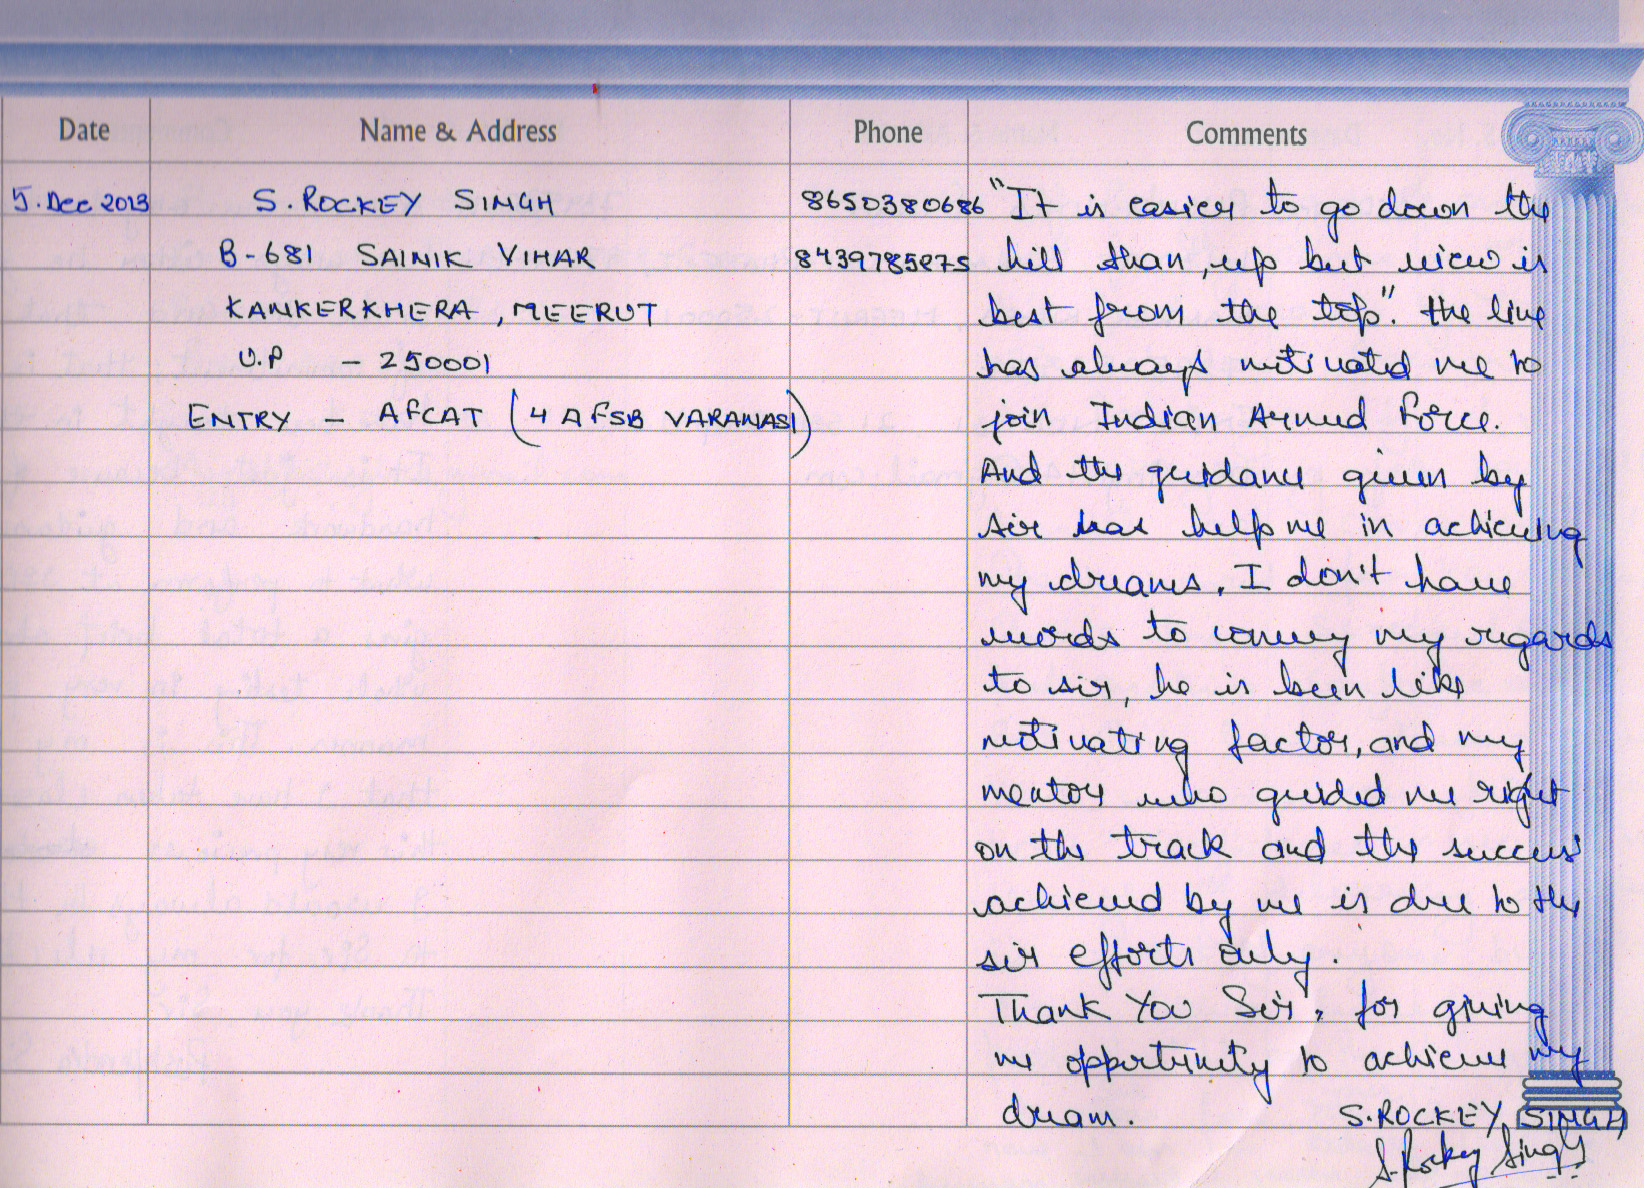 Date Name & Address Phone Comments
5. Dec 2013 S. ROCKEY SINGH 8650380686 "It is easier to go down the
B-681 SAINIK VIHAR 8439785875 hill than, up but view is
KANKERKHERA, MEERUT best from the top". the line
U.P - 250001 has always motivated me to
ENTRY - AFCAT (4 AFSB VARANASI) join Indian Armed Force.
And the guidance given by
sir has help me in achieving
my dreams. I don't have
words to convey my regards
to sir, he is been like
motivating factor, and my
mentor who guided me right
on the track and the success
achieved by me is due to the
sir efforts only.
Thank You Sir, for giving
me opportunity to achieve my
dream. S. ROCKEY SINGH
S. Rockey Singh